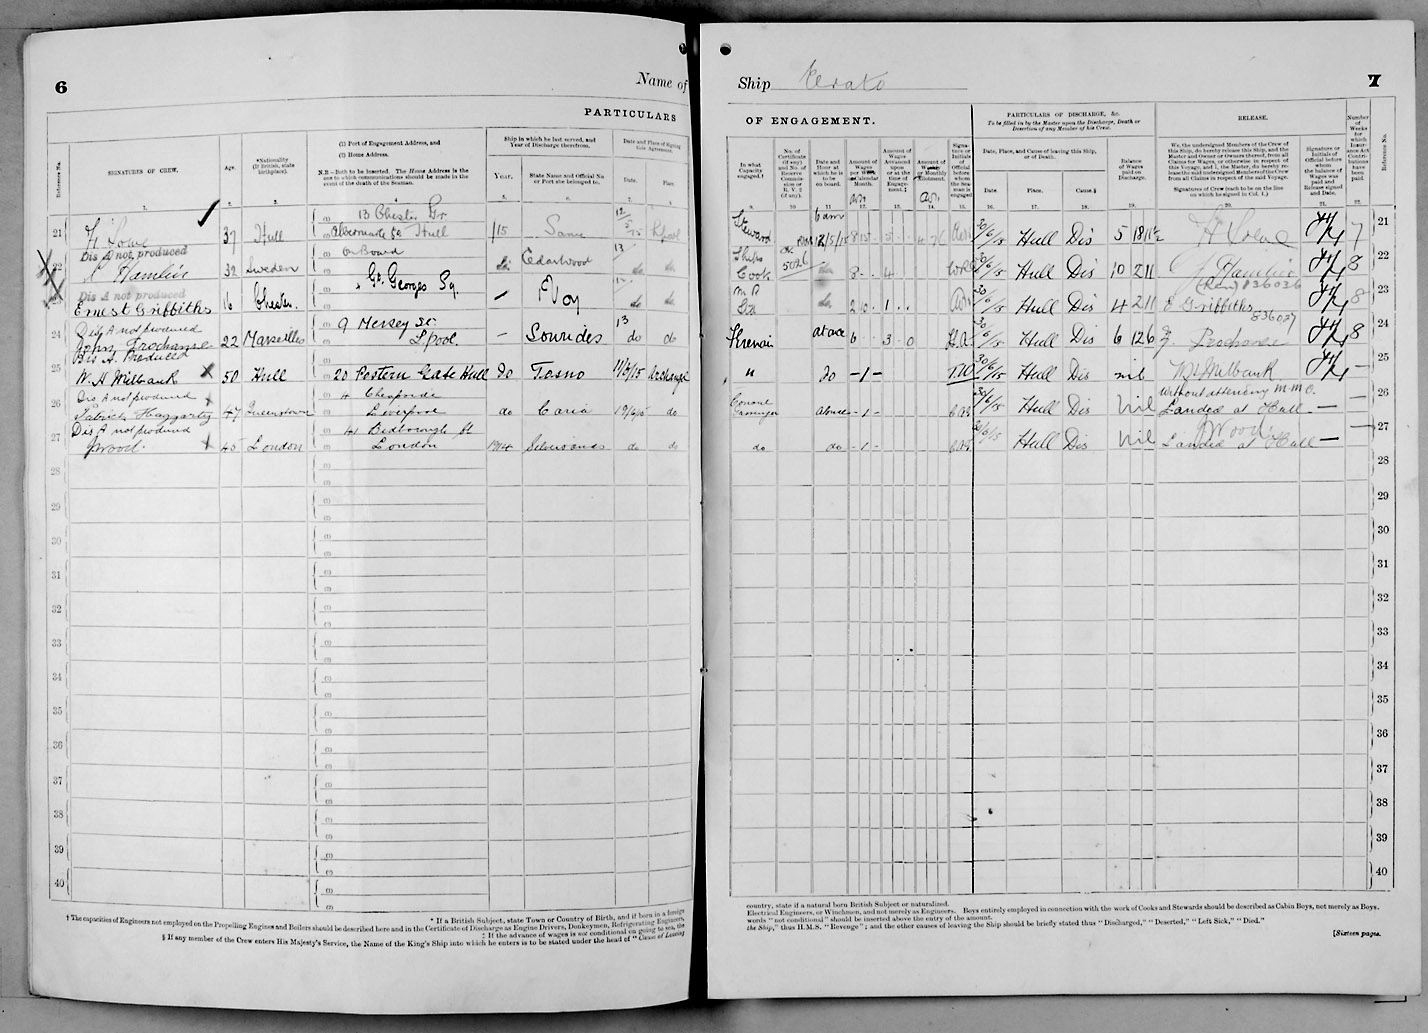 6
Name of
PARTICULARS
Reference No.
SIGNATURES OF CREW.
Age.
*Nationality
(If British, state
birthplace).
(1) Port of Engagement Address, and
(2) Home Address.
N.B.—Both to be inserted. The Home Address is the
one to which communications should be made in the
event of the death of the Seaman.
Ship in which he last served, and
Year of Discharge therefrom.
Year.
State Name and Official No.
or Port she belonged to.
Date and Place of Signing
this Agreement.
Date.
Place.
21
37 Hull
13 Chester Gr
Hull
/15
Same
Dis A not produced
22
Hamlin
32 Sweden
On Board
Cedarwood
13
do
Dis A not produced
Ernest Griffiths
16 Chester.
Gt. Georges Sq.
do do
Dis A not produced
24
John
22 Marseilles
9 Mersey St
Lpool
—
13
do do
Dis A. Produced
25
W. H. Wilbank
50 Hull
20 Postern Gate Hull
do
11/6/15 Archangel
Dis A not produced
26
Patrick Haggarty
47 Queenstown
4 Cheapside
Liverpool
do
Caria
19/6/15 do
Dis A not produced
27
J Wood
45 London
41 Bedborough St
London
1914
do do
28
29
30
31
32
33
34
35
36
37
38
39
40
† The capacities of Engineers not employed on the Propelling Engines and Boilers should be described here and in the Certificate of Discharge as Engine Drivers, Donkeymen, Refrigerating Engineers,
* If a British Subject, state Town or Country of Birth, and if born in a foreign
‡ If the advance of wages is not conditional on going to sea, the
§ If any member of the Crew enters His Majesty's Service, the Name of the King's Ship into which he enters is to be stated under the head of "Cause of Leaving
Ship Erato
7
OF ENGAGEMENT.
PARTICULARS OF DISCHARGE, &c.
To be filled in by the Master upon the Discharge, Death or
Desertion of any Member of his Crew.
RELEASE.
In what
Capacity
engaged.†
No. of
Certificate
(if any)
and No. of
Reserve
Commission
or
R. V. 2
(if any).
Date and
Hour at
which he
is to be
on board.
Amount of
Wages
per Week
Calendar
Month.
Amount of
Wages
Advanced
upon
or at the
time of
Engagement.‡
Amount of
Weekly
or Monthly
Allotment.
Signature or
Initials of
Official
before
whom the
Seaman is
engaged
Date, Place, and Cause of leaving this Ship,
or of Death.
Date.
Place.
Cause.§
Balance of
Wages
paid on
Discharge.
We, the undersigned Members of the Crew of
this Ship, do hereby release this Ship, and the
Master and Owner or Owners thereof, from all
Claims for Wages, or otherwise in respect of
this Voyage, and I, the Master, do hereby release
the said undersigned Members of the Crew
from all Claims in respect of the said Voyage.
Signatures of Crew (each to be on the line
on which he signed in Col. 1.)
Signature or
Initials of
Official before
whom
the balance of
Wages was
paid and
Release signed
and Date.
Number
of
Weeks
for
which
Insurance Act
Contributions
have been
paid.
Reference No.
Steward
6 am
12/5/15
30/6/15 Hull Dis 5 18 11½
7
21
Ships
Cook
5026
do
8 - 4
30/6/15 Hull Dis 10 2 11
Hamlin
8
22
do
2 10 1
30/6/15 Hull Dis 4 2 11
836036
E Griffiths
8
23
at once
6 3 0
30/6/15 Hull Dis 6 12 6
836037
8
24
"
do
- 1 -
30/6/15 Hull Dis nil
W H Wilbank
—
25
Consul
at once
- 1 -
30/6/15 Hull Dis Nil
Without attending M.M.O.
Landed at Hull —
26
do
do
- 1 -
30/6/15 Hull Dis Nil
J Wood
Landed at Hull —
27
28
29
30
31
32
33
34
35
36
37
38
39
40
country, state if a natural born British Subject or naturalized.
Electrical Engineers, or Winchmen, and not merely as Engineers. Boys entirely employed in connection with the work of Cooks and Stewards should be described as Cabin Boys, not merely as Boys.
words "not conditional" should be inserted above the entry of the amount.
the Ship," thus H.M.S. "Revenge"; and the other causes of leaving the Ship should be briefly stated thus "Discharged," "Deserted," "Left Sick," "Died."
[Sixteen pages.